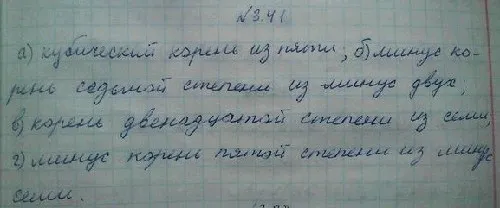 №3.41
а) кубический корень из пяти; б) минус ко-
рень седьмой степени из минус двух;
в) корень двенадцатой степени из семи;
г) минус корень пятой степени из минус
семи.